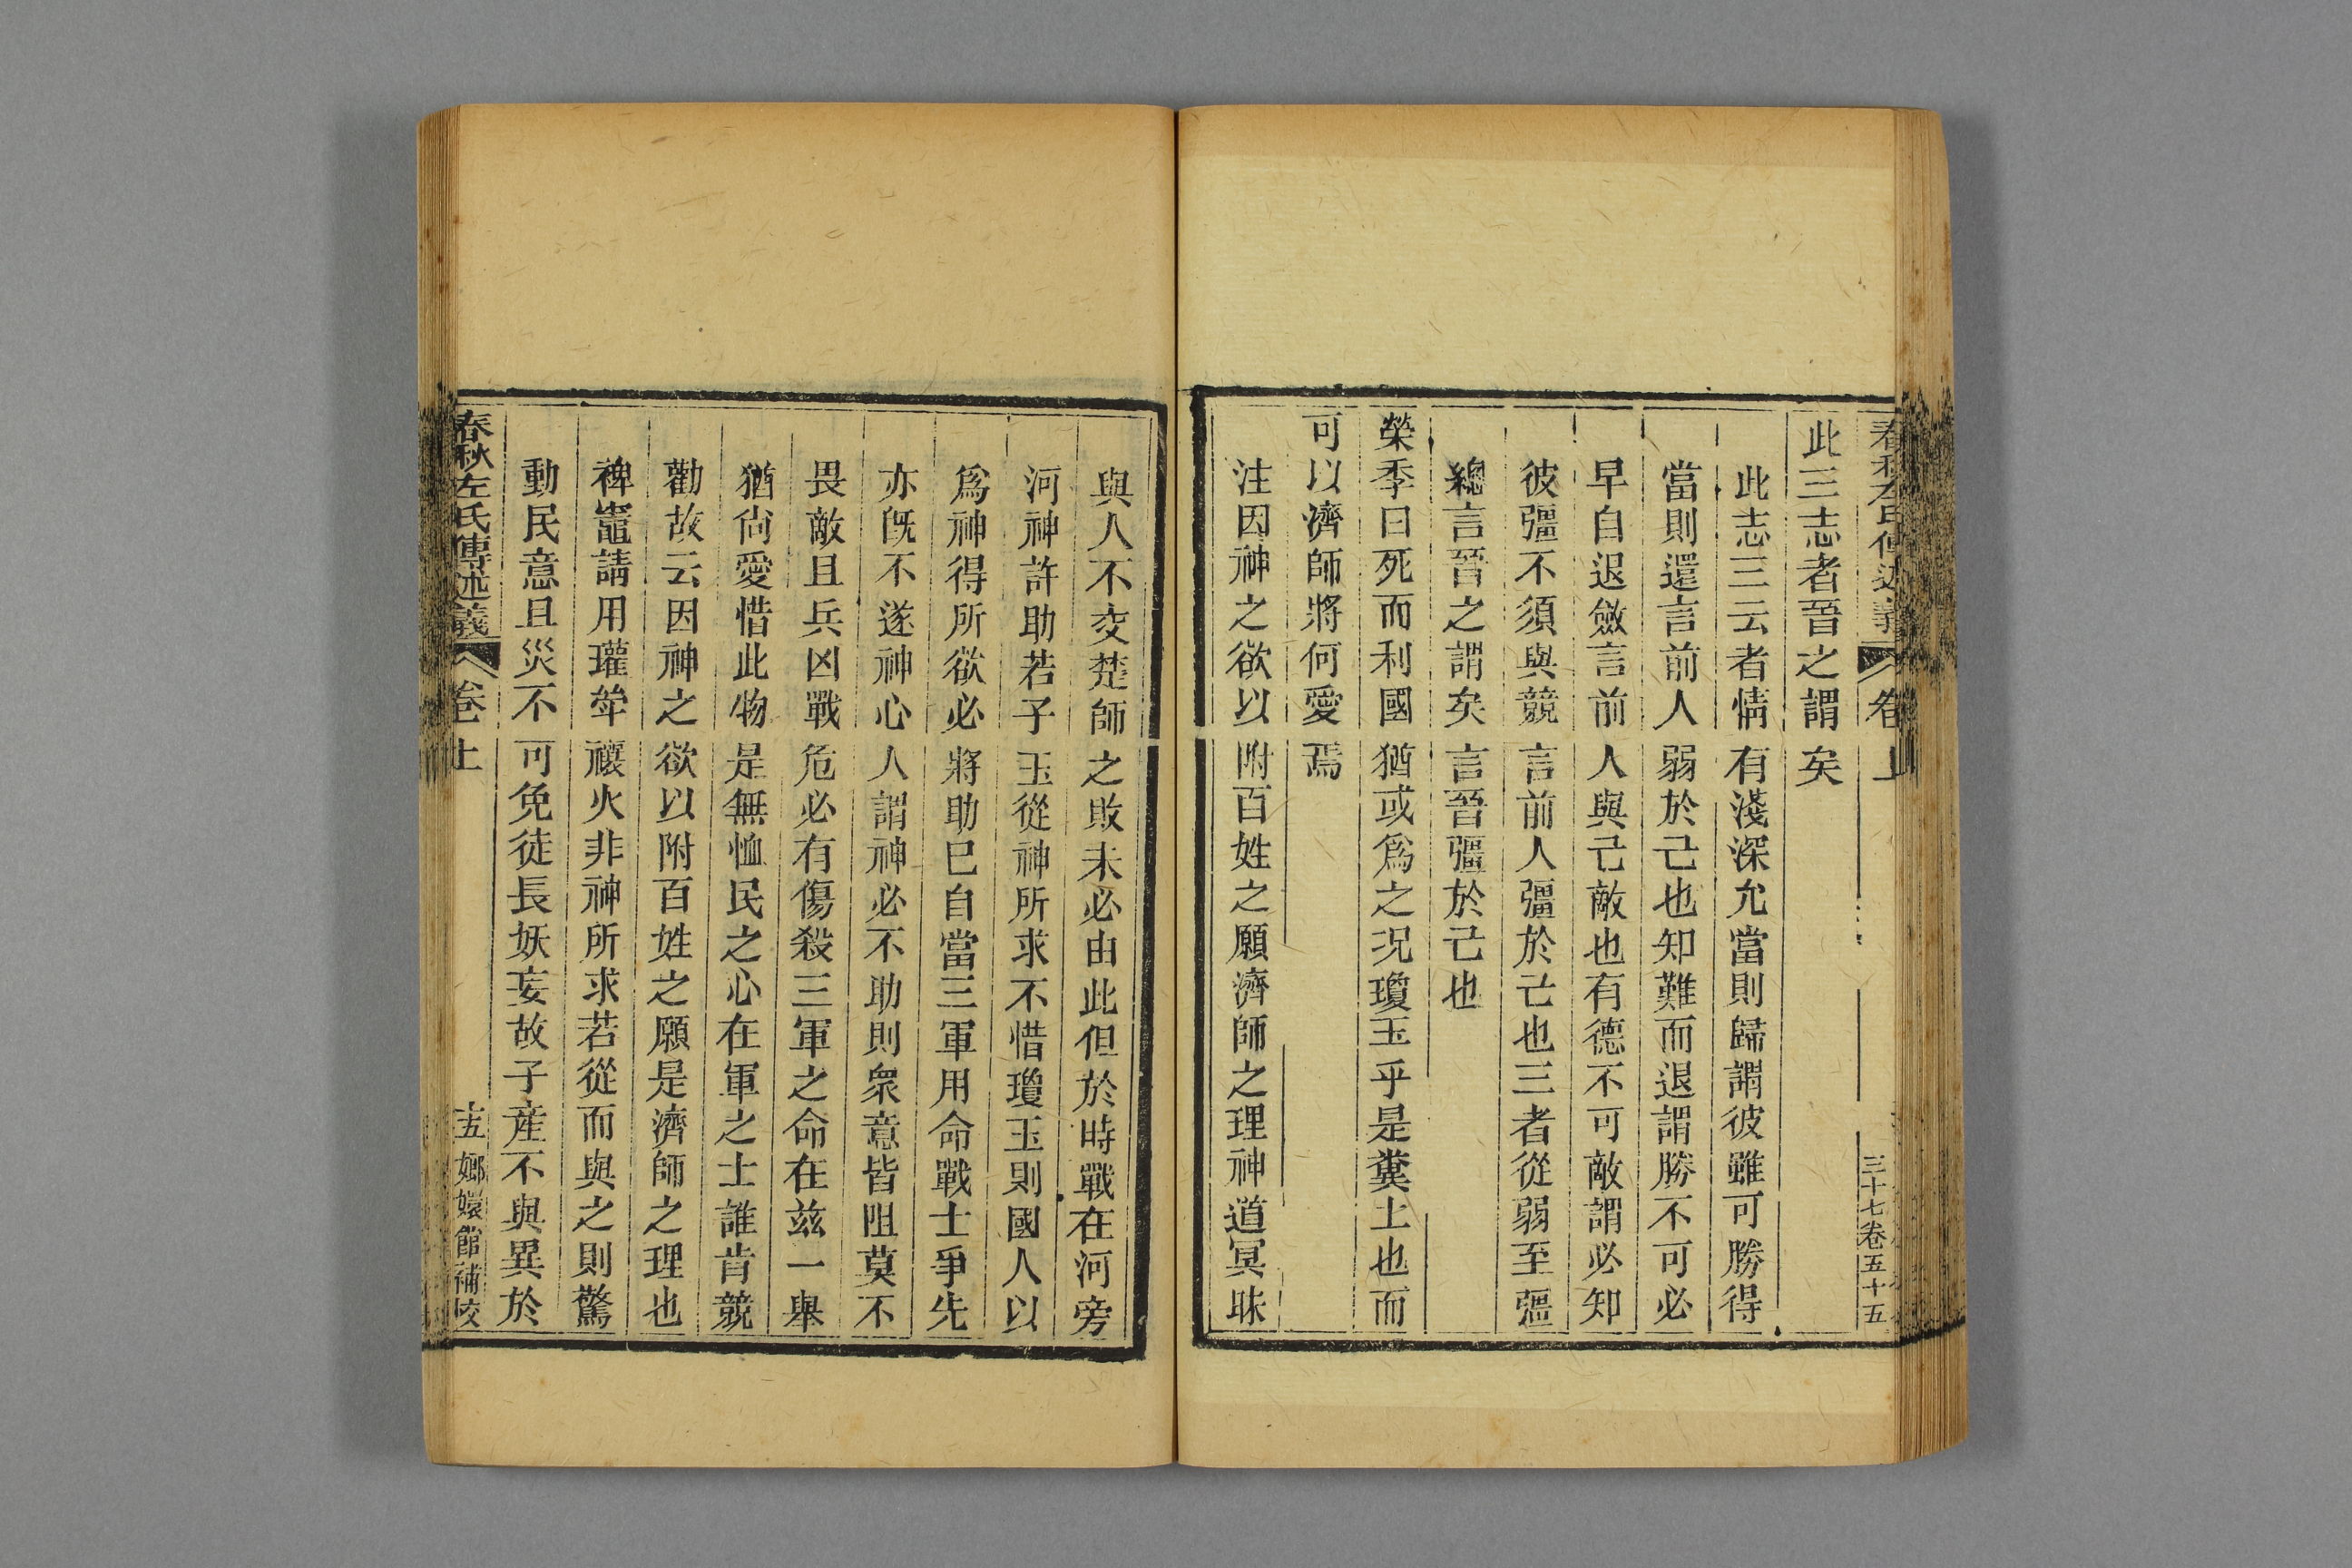 春秋左氏傳述義 卷上 三十七卷五十五
此三志者晉之謂矣
此志三云者情有淺深允當則歸謂彼雖可勝得
當則還言前人弱於己也知難而退謂勝不可必
早自退斂言前人與己敵也有德不可敵謂必知
彼彊不須與競言前人彊於己也三者從弱至彊
總言晉之謂矣言晉彊於己也
榮季曰死而利國猶或爲之況瓊玉乎是糞土也而
可以濟師將何愛焉
注因神之欲以附百姓之願濟師之理神道冥昧
與人不交楚師之敗未必由此但於時戰在河旁
河神許助若子玉從神所求不惜瓊玉則國人以
爲神得所欲必將助己自當三軍用命戰士爭先
亦旣不遂神心人謂神必不助則衆意皆阻莫不
畏敵且兵凶戰危必有傷殺三軍之命在茲一舉
猶尙愛惜此物是無恤民之心在軍之士誰肯競
勸故云因神之欲以附百姓之願是濟師之理也
裨竈請用瓘斝禳火非神所求若從而與之則驚
動民意且災不可免徒長妖妄故子産不與異於
春秋左氏傳述義 卷上 十五 嫏嬛館補校